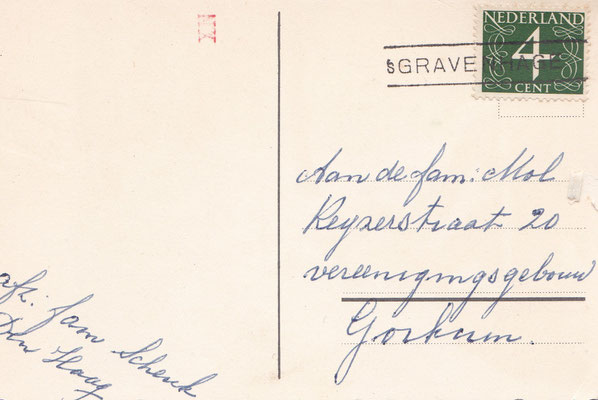 NEDERLAND
4
CENT
sGRAVENHAGE
Aan de fam: Mol
Keyzerstraat 20
vereenigingsgebouw
Gorkum.
afz: fam Schenk
Den Haag